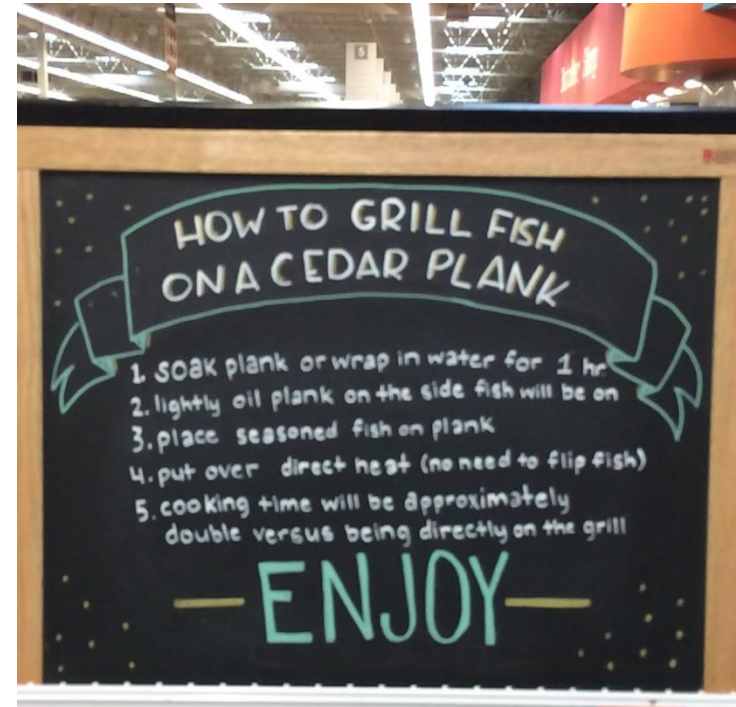 5
HOW TO GRILL FISH
ON A CEDAR PLANK
1. soak plank or wrap in water for 1 hr
2. lightly oil plank on the side fish will be on
3. place seasoned fish on plank
4. put over direct heat (no need to flip fish)
5. cooking time will be approximately
double versus being directly on the grill
ENJOY